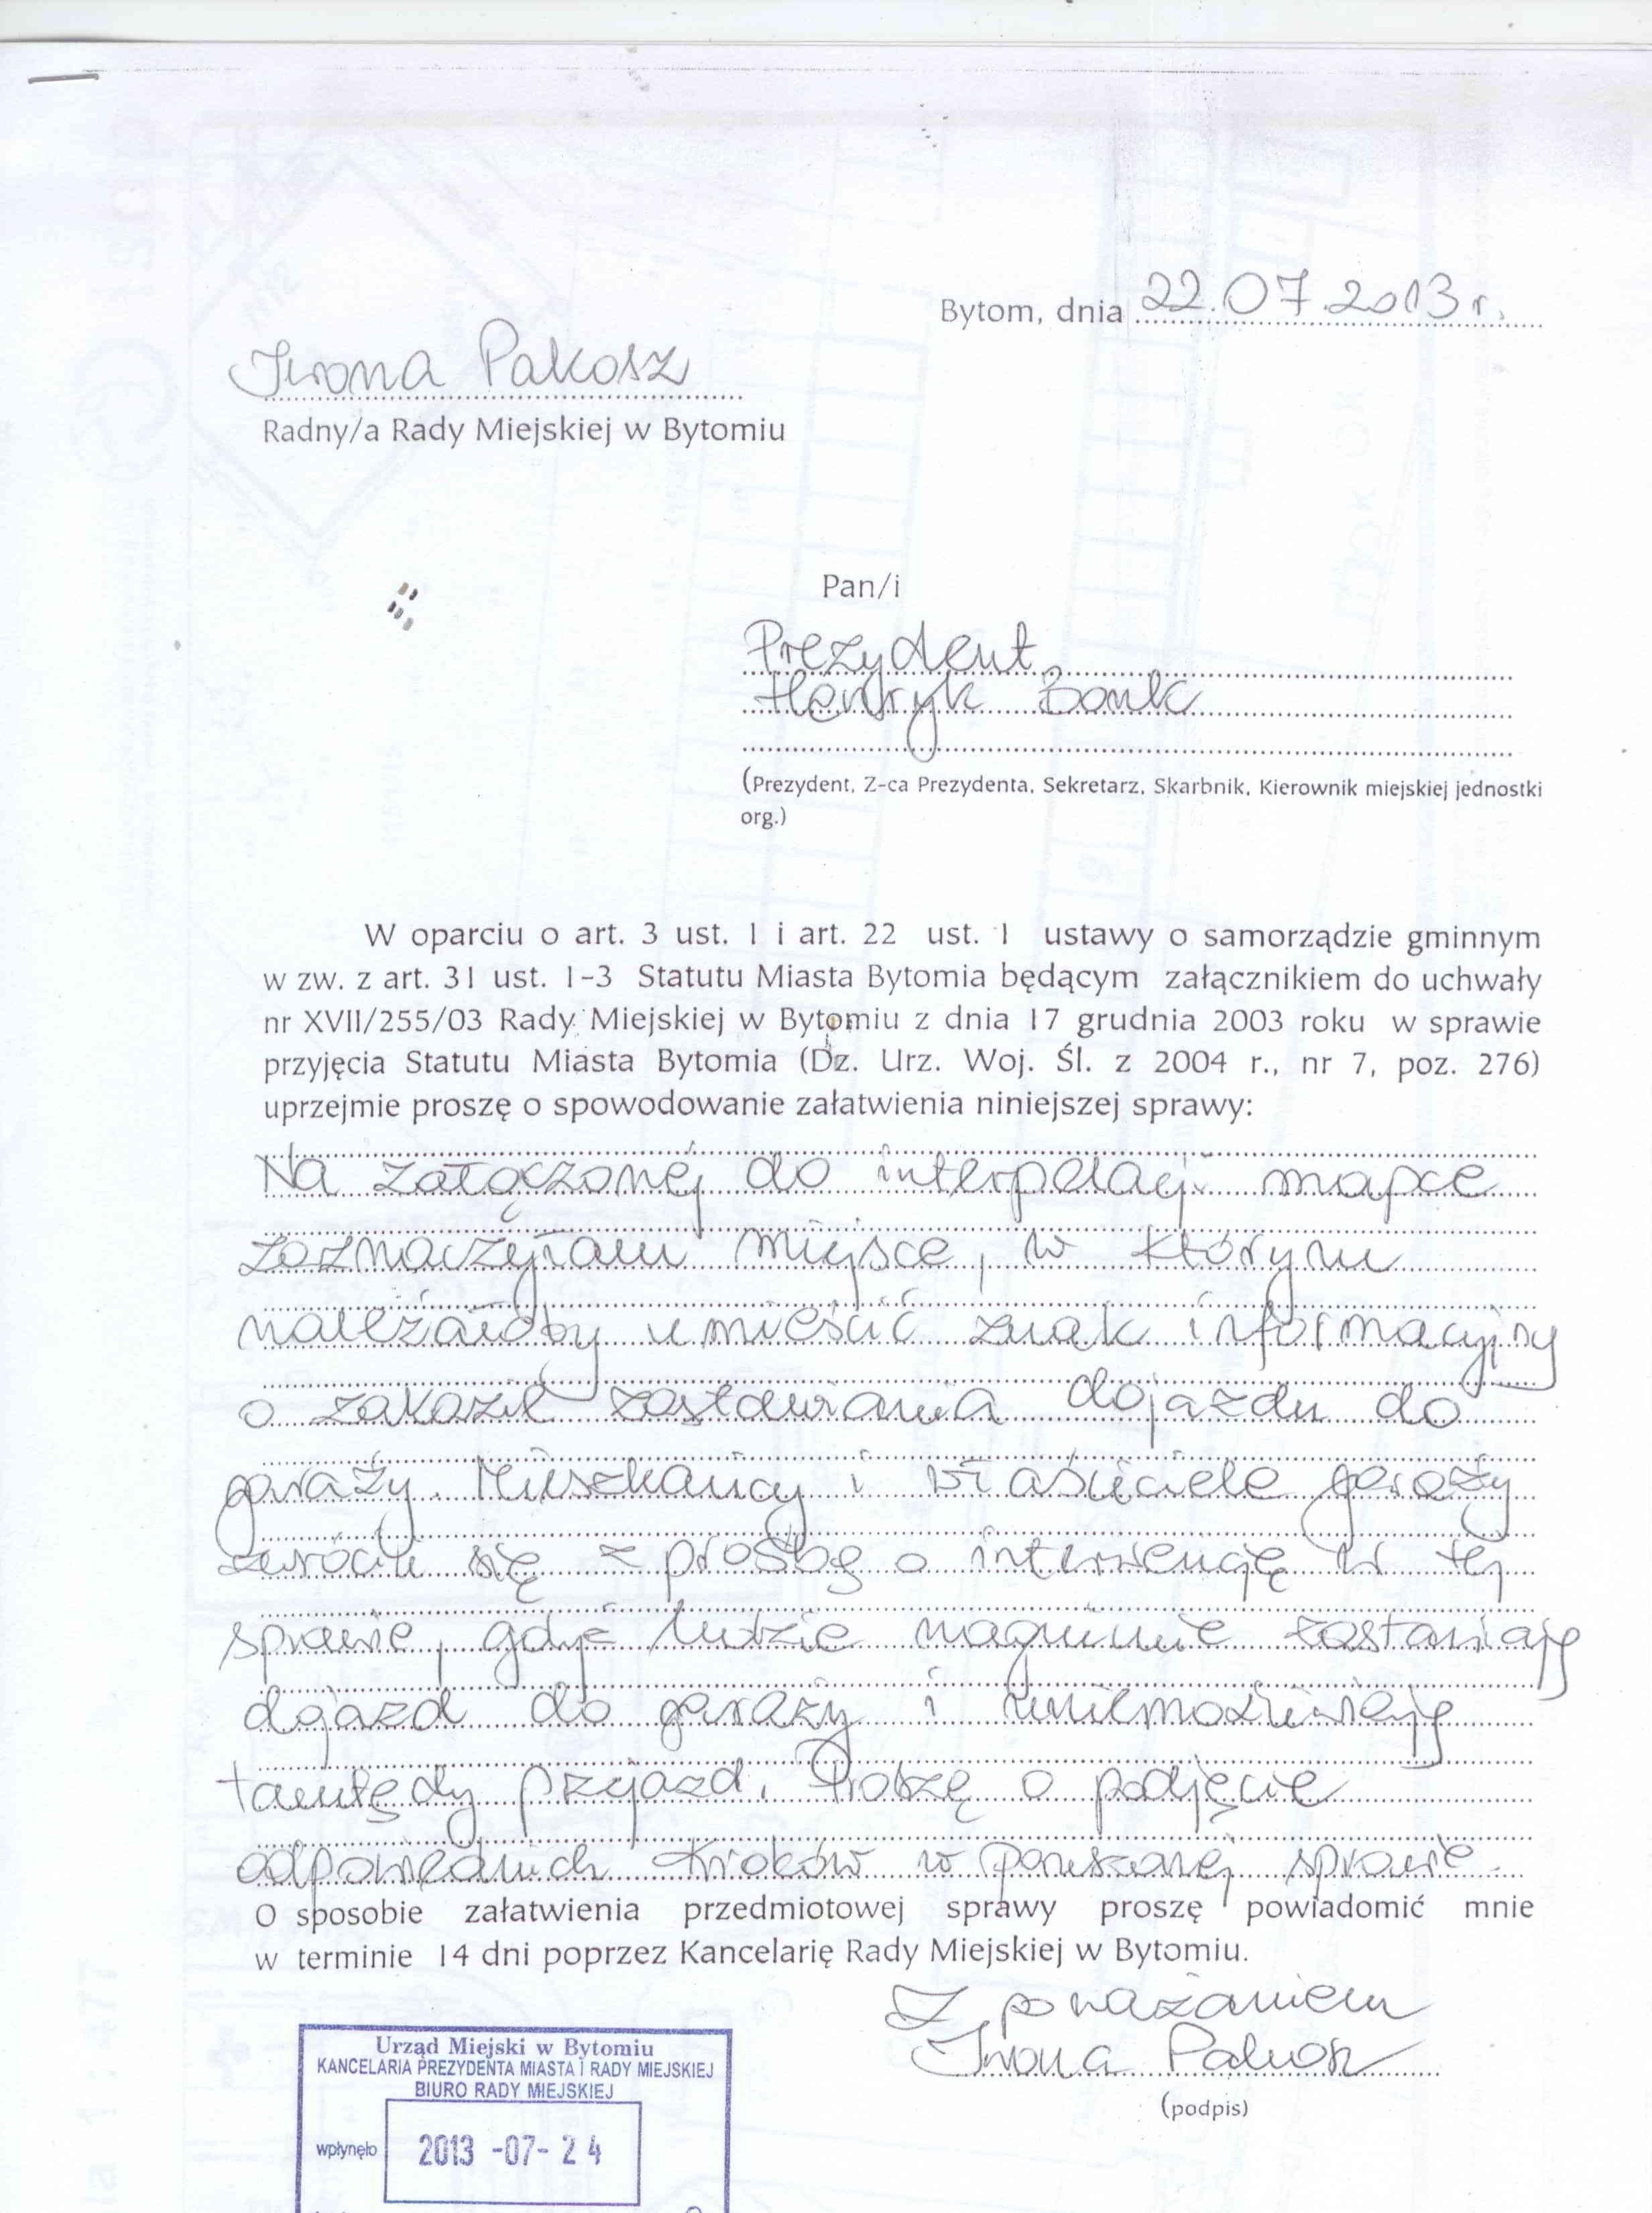 Bytom, dnia 22.07.2013 r.
Iwona Pakosz
Radny/a Rady Miejskiej w Bytomiu
Pan/i
Prezydent
Henryk Bonk
(Prezydent, Z-ca Prezydenta, Sekretarz, Skarbnik, Kierownik miejskiej jednostki
org.)
W oparciu o art. 3 ust. 1 i art. 22 ust. 1 ustawy o samorządzie gminnym
w zw. z art. 31 ust. 1-3 Statutu Miasta Bytomia będącym załącznikiem do uchwały
nr XVII/255/03 Rady Miejskiej w Bytomiu z dnia 17 grudnia 2003 roku w sprawie
przyjęcia Statutu Miasta Bytomia (Dz. Urz. Woj. Śl. z 2004 r., nr 7, poz. 276)
uprzejmie proszę o spowodowanie załatwienia niniejszej sprawy:
Na załączonej do interpelacji mapce
zaznaczyłam miejsce, w którym
należałoby umieścić znak informacyjny
o zakazie zastawiania dojazdu do
garaży. Mieszkańcy i właściciele garaży
zwrócili się z prośbą o interwencję w tej
sprawie, gdyż ludzie nagminnie zastawiają
dojazd do garaży i uniemożliwiają
tamtędy przejazd. Proszę o podjęcie
odpowiednich kroków w poruszanej sprawie.
O sposobie załatwienia przedmiotowej sprawy proszę powiadomić mnie
w terminie 14 dni poprzez Kancelarię Rady Miejskiej w Bytomiu.
Z poważaniem
Iwona Pakosz
(podpis)
Urząd Miejski w Bytomiu
KANCELARIA PREZYDENTA MIASTA I RADY MIEJSKIEJ
BIURO RADY MIEJSKIEJ
wpłynęło 2013 -07- 24